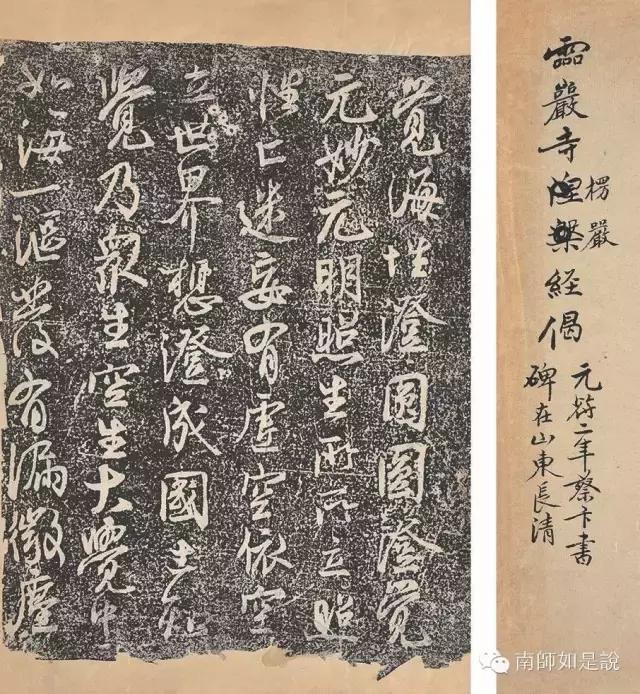 靈巖寺涅槃經偈
楞嚴
元符二年蔡卞書
碑在山東長清
覺海性澄圓圓澄覺
元妙元明照生所所立照
性亡迷妄有虛空依空
立世界想澄成國土知
覺乃眾生空生大覺中
如海一漚發有漏微塵
南師如是說